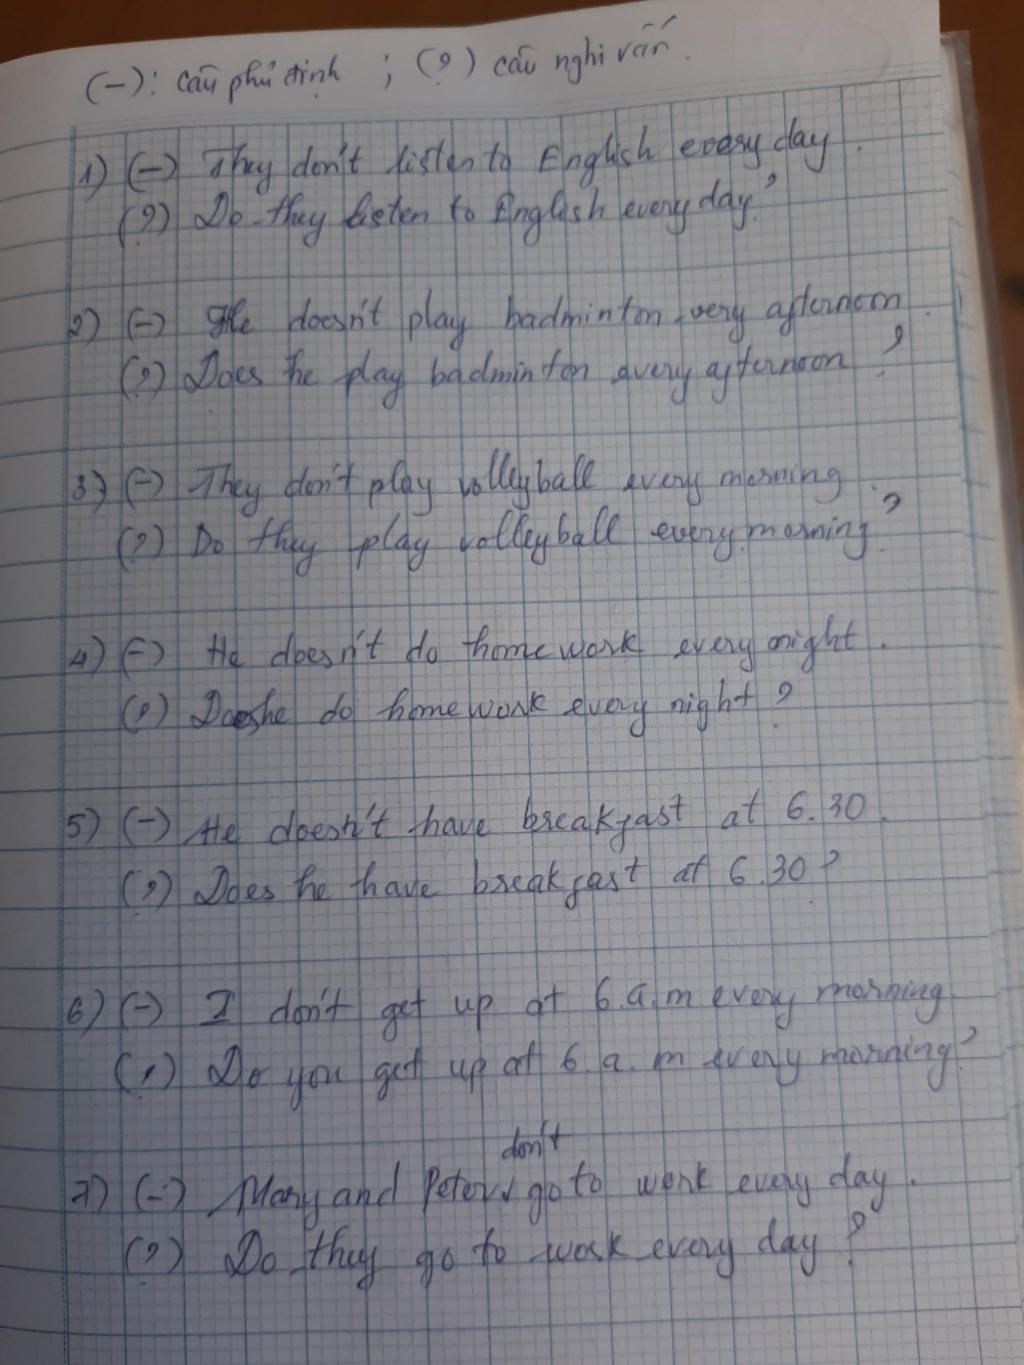 (-): câu phủ định ; (?) câu nghi vấn.
1) (-) They don't listen to English every day.
(?) Do they listen to English every day?
2) (-) He doesn't play badminton every afternoon.
(?) Does he play badminton every afternoon?
3) (-) They don't play volleyball every morning
(?) Do they play volleyball every morning?
4) (-) He doesn't do homework every night.
(?) Does he do homework every night?
5) (-) He doesn't have breakfast at 6.30.
(?) Does he have breakfast at 6.30?
6) (-) I don't get up at 6.a.m every morning
(?) Do you get up at 6.a.m every morning?
don't
7) (-) Mary and Peter go to work every day.
(?) Do they go to work every day?